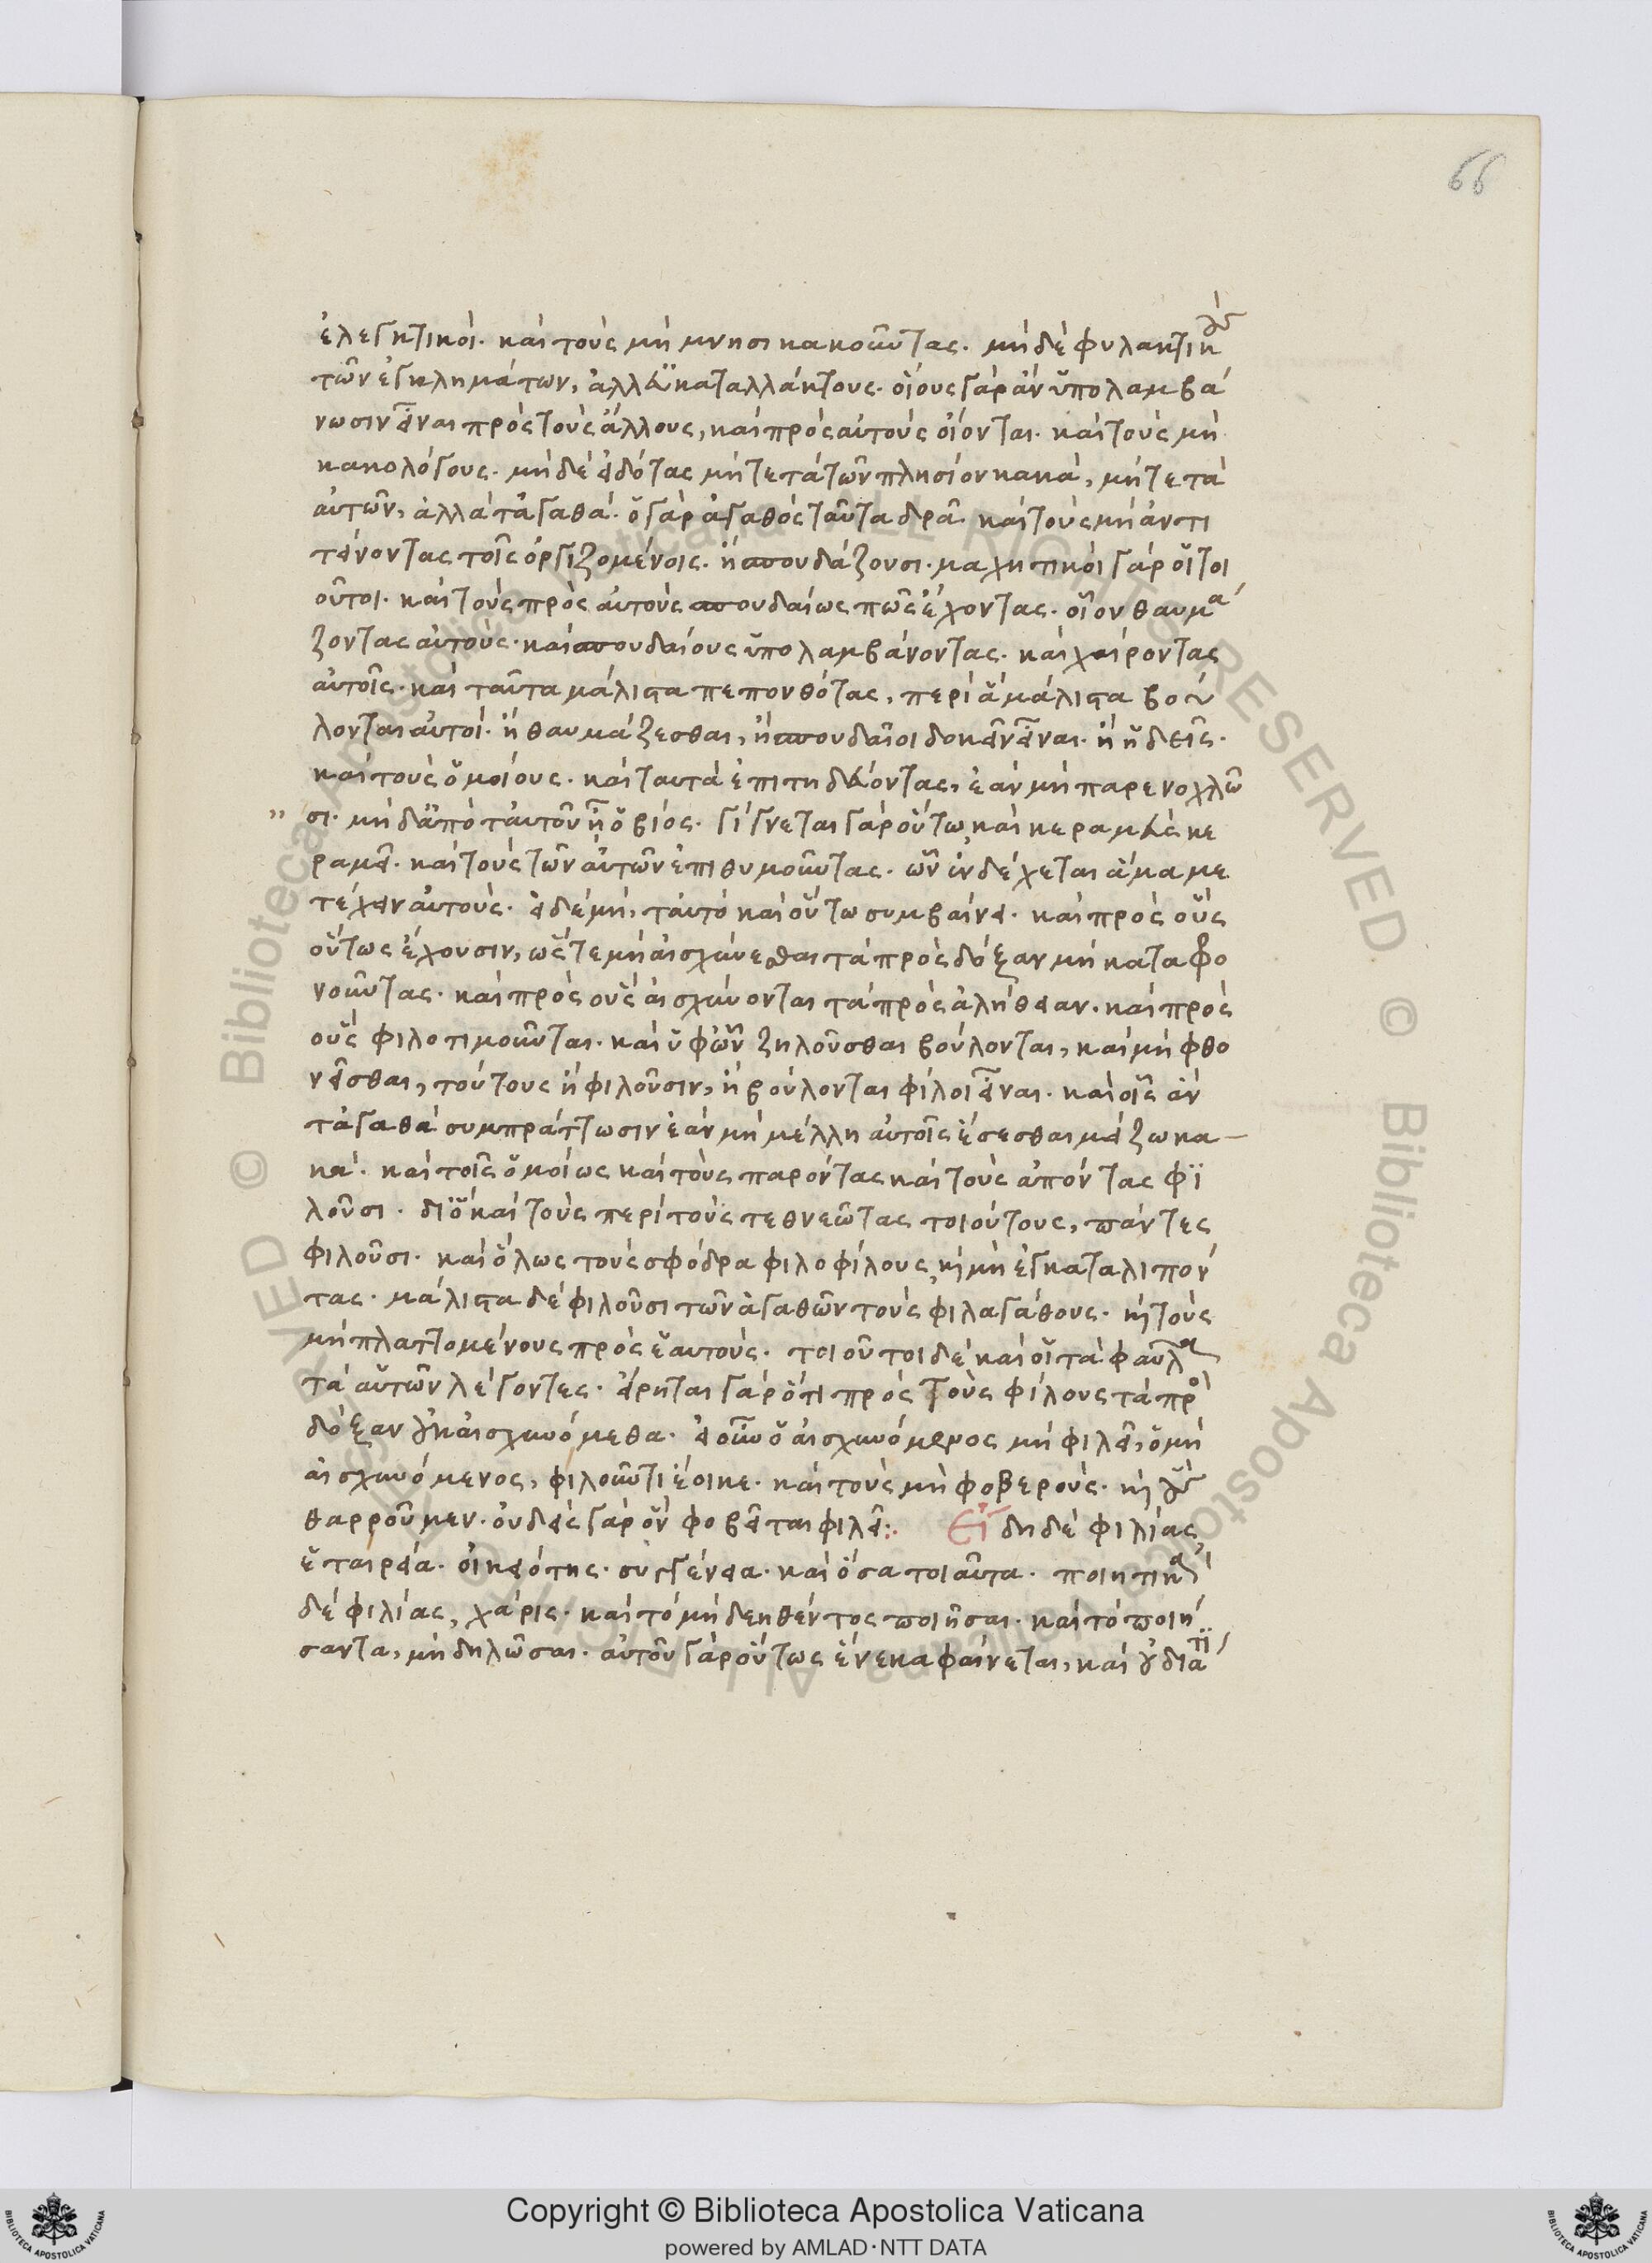 66
ἐλεγκτικοί. καὶ τοὺς μὴ μνησικακοῦντας. μηδὲ φυλακτικοὺς
τῶν ἐγκλημάτων, ἀλλ' εὐκαταλλάκτους. οἵους γὰρ ἂν ὑπολαμβά
νωσιν εἶναι πρὸς τοὺς ἄλλους, καὶ πρὸς αὐτοὺς οἴονται. καὶ τοὺς μὴ
κακολόγους. μηδὲ εἰδότας μήτε τὰ τῶν πλησίον κακά, μήτε τὰ
αὐτῶν, ἀλλὰ τἀγαθά. ὁ γὰρ ἀγαθὸς ταῦτα δρᾶ. καὶ τοὺς μὴ ἀντι
τείνοντας τοῖς ὀργιζομένοις. ἢ σπουδάζουσι. μαχητικοὶ γὰρ οἱ τοι
οῦτοι. καὶ τοὺς πρὸς αὐτοὺς σπουδαίως πως ἔχοντας. οἷον θαυμά
ζοντας αὐτούς. καὶ σπουδαίους ὑπολαμβάνοντας. καὶ χαίροντας
αὐτοῖς. καὶ ταῦτα μάλιστα πεπονθότας, περὶ ἃ μάλιστα βού
λονται αὐτοί. ἢ θαυμάζεσθαι, ἢ σπουδαῖοι δοκεῖν εἶναι. ἢ ἡδεῖς.
καὶ τοὺς ὁμοίους. καὶ ταυτὰ ἐπιτηδεύοντας, ἐὰν μὴ παρενοχλῶ
σι. μηδ' ἀπὸ ταὐτοῦ ᾖ ὁ βίος. γίγνεται γὰρ οὕτω, καὶ κεραμεὺς κε
ραμεῖ. καὶ τοὺς τῶν αὐτῶν ἐπιθυμοῦντας. ὧν ἐνδέχεται ἅμα με
τέχειν αὐτούς. εἰ δὲ μή, ταὐτὸ καὶ οὕτω συμβαίνει. καὶ πρὸς οὓς
οὕτως ἔχουσιν, ὥστε μὴ αἰσχύνεσθαι τὰ πρὸς δόξαν μὴ καταφρο
νοῦντας. καὶ πρὸς οὓς αἰσχύνονται τὰ πρὸς ἀλήθειαν. καὶ πρὸς
οὓς φιλοτιμοῦνται. καὶ ὑφ' ὧν ζηλοῦσθαι βούλονται, καὶ μὴ φθο
νεῖσθαι, τούτους ἢ φιλοῦσιν, ἢ βούλονται φίλοι εἶναι. καὶ οἷς ἂν
τἀγαθὰ συμπράττωσιν ἐὰν μὴ μέλλη αὐτοῖς ἔσεσθαι μείζω κα
κά. καὶ τοῖς ὁμοίως καὶ τοὺς παρόντας καὶ τοὺς ἀπόντας φι
λοῦσι. διὸ καὶ τοὺς περὶ τοὺς τεθνεῶτας τοιούτους, πάντες
φιλοῦσι. καὶ ὅλως τοὺς σφόδρα φιλοφίλους, κ(αὶ) μὴ ἐγκαταλιπόν
τας. μάλιστα δὲ φιλοῦσι τῶν ἀγαθῶν τοὺς φιλαγάθους. κ(αὶ) τοὺς
μὴ πλαττομένους πρὸς ἑαυτούς. τοιοῦτοι δὲ καὶ οἱ τὰ φαῦλα
τὰ αὑτῶν λέγοντες. εἴρηται γὰρ ὅτι πρὸς τοὺς φίλους τὰ πρὸς
δόξαν οὐκ αἰσχυνόμεθα. εἰ οὖν ὁ αἰσχυνόμενος μὴ φιλεῖ, ὁ μὴ
αἰσχυνόμενος, φιλοῦντι ἔοικε. καὶ τοὺς μὴ φοβερούς. κ(αὶ) οὓς
θαρροῦμεν. οὐδεὶς γὰρ ὃν φοβεῖται φιλεῖ:. Εἴδη δὲ φιλίας
ἑταιρεία. οἰκειότης. συγγένεια. καὶ ὅσα τοιαῦτα. ποιητικὰ
δὲ φιλίας, χάρις. καὶ τὸ μὴ δεηθέντος ποιῆσαι. καὶ τὸ ποιή
σαντα, μὴ δηλῶσαι. αὐτοῦ γὰρ οὕτως ἕνεκα φαίνεται, καὶ οὐ διά τι
Copyright © Biblioteca Apostolica Vaticana
powered by AMLAD·NTT DATA